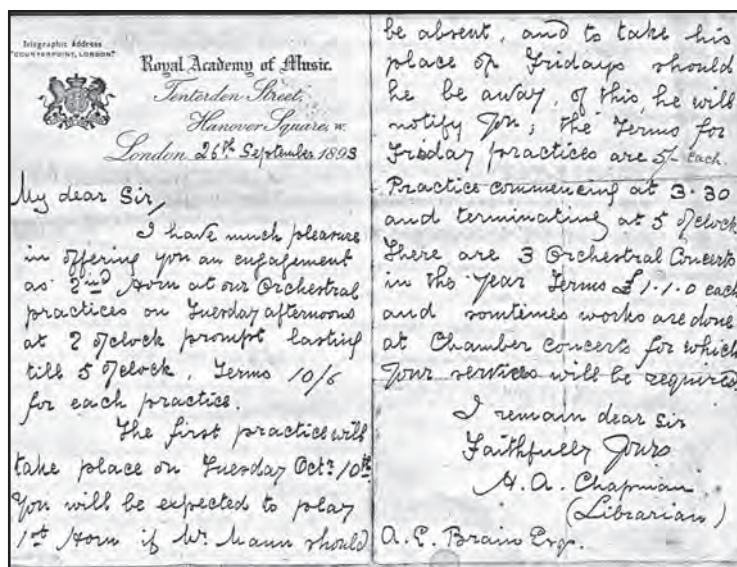 Telegraphic Address
"COUNTERPOINT, LONDON."
Royal Academy of Music.
Tenterden Street,
Hanover Square, W.
London 26th September 1893
My dear Sir,
I have much pleasure
in offering you an engagement
as 2nd Horn at our Orchestral
practices on Tuesday afternoons
at 2 o'clock prompt lasting
till 5 o'clock. Terms 10/6
for each practice.
The first practice will
take place on Tuesday Octr 10th
You will be expected to play
1st Horn if Mr. Mann should
be absent, and to take his
place on Fridays should
he be away, of this, he will
notify you; the Terms for
Friday practices are 5/- each.
Practice commencing at 3.30
and terminating at 5 o'clock
There are 3 Orchestral Concerts
in the year Terms £1.1.0 each
and somtimes works are done
at Chamber concerts for which
your services will be required
I remain dear Sir
Faithfully Yours
H. A. Chapman
(Librarian)
A. E. Brain Esq.